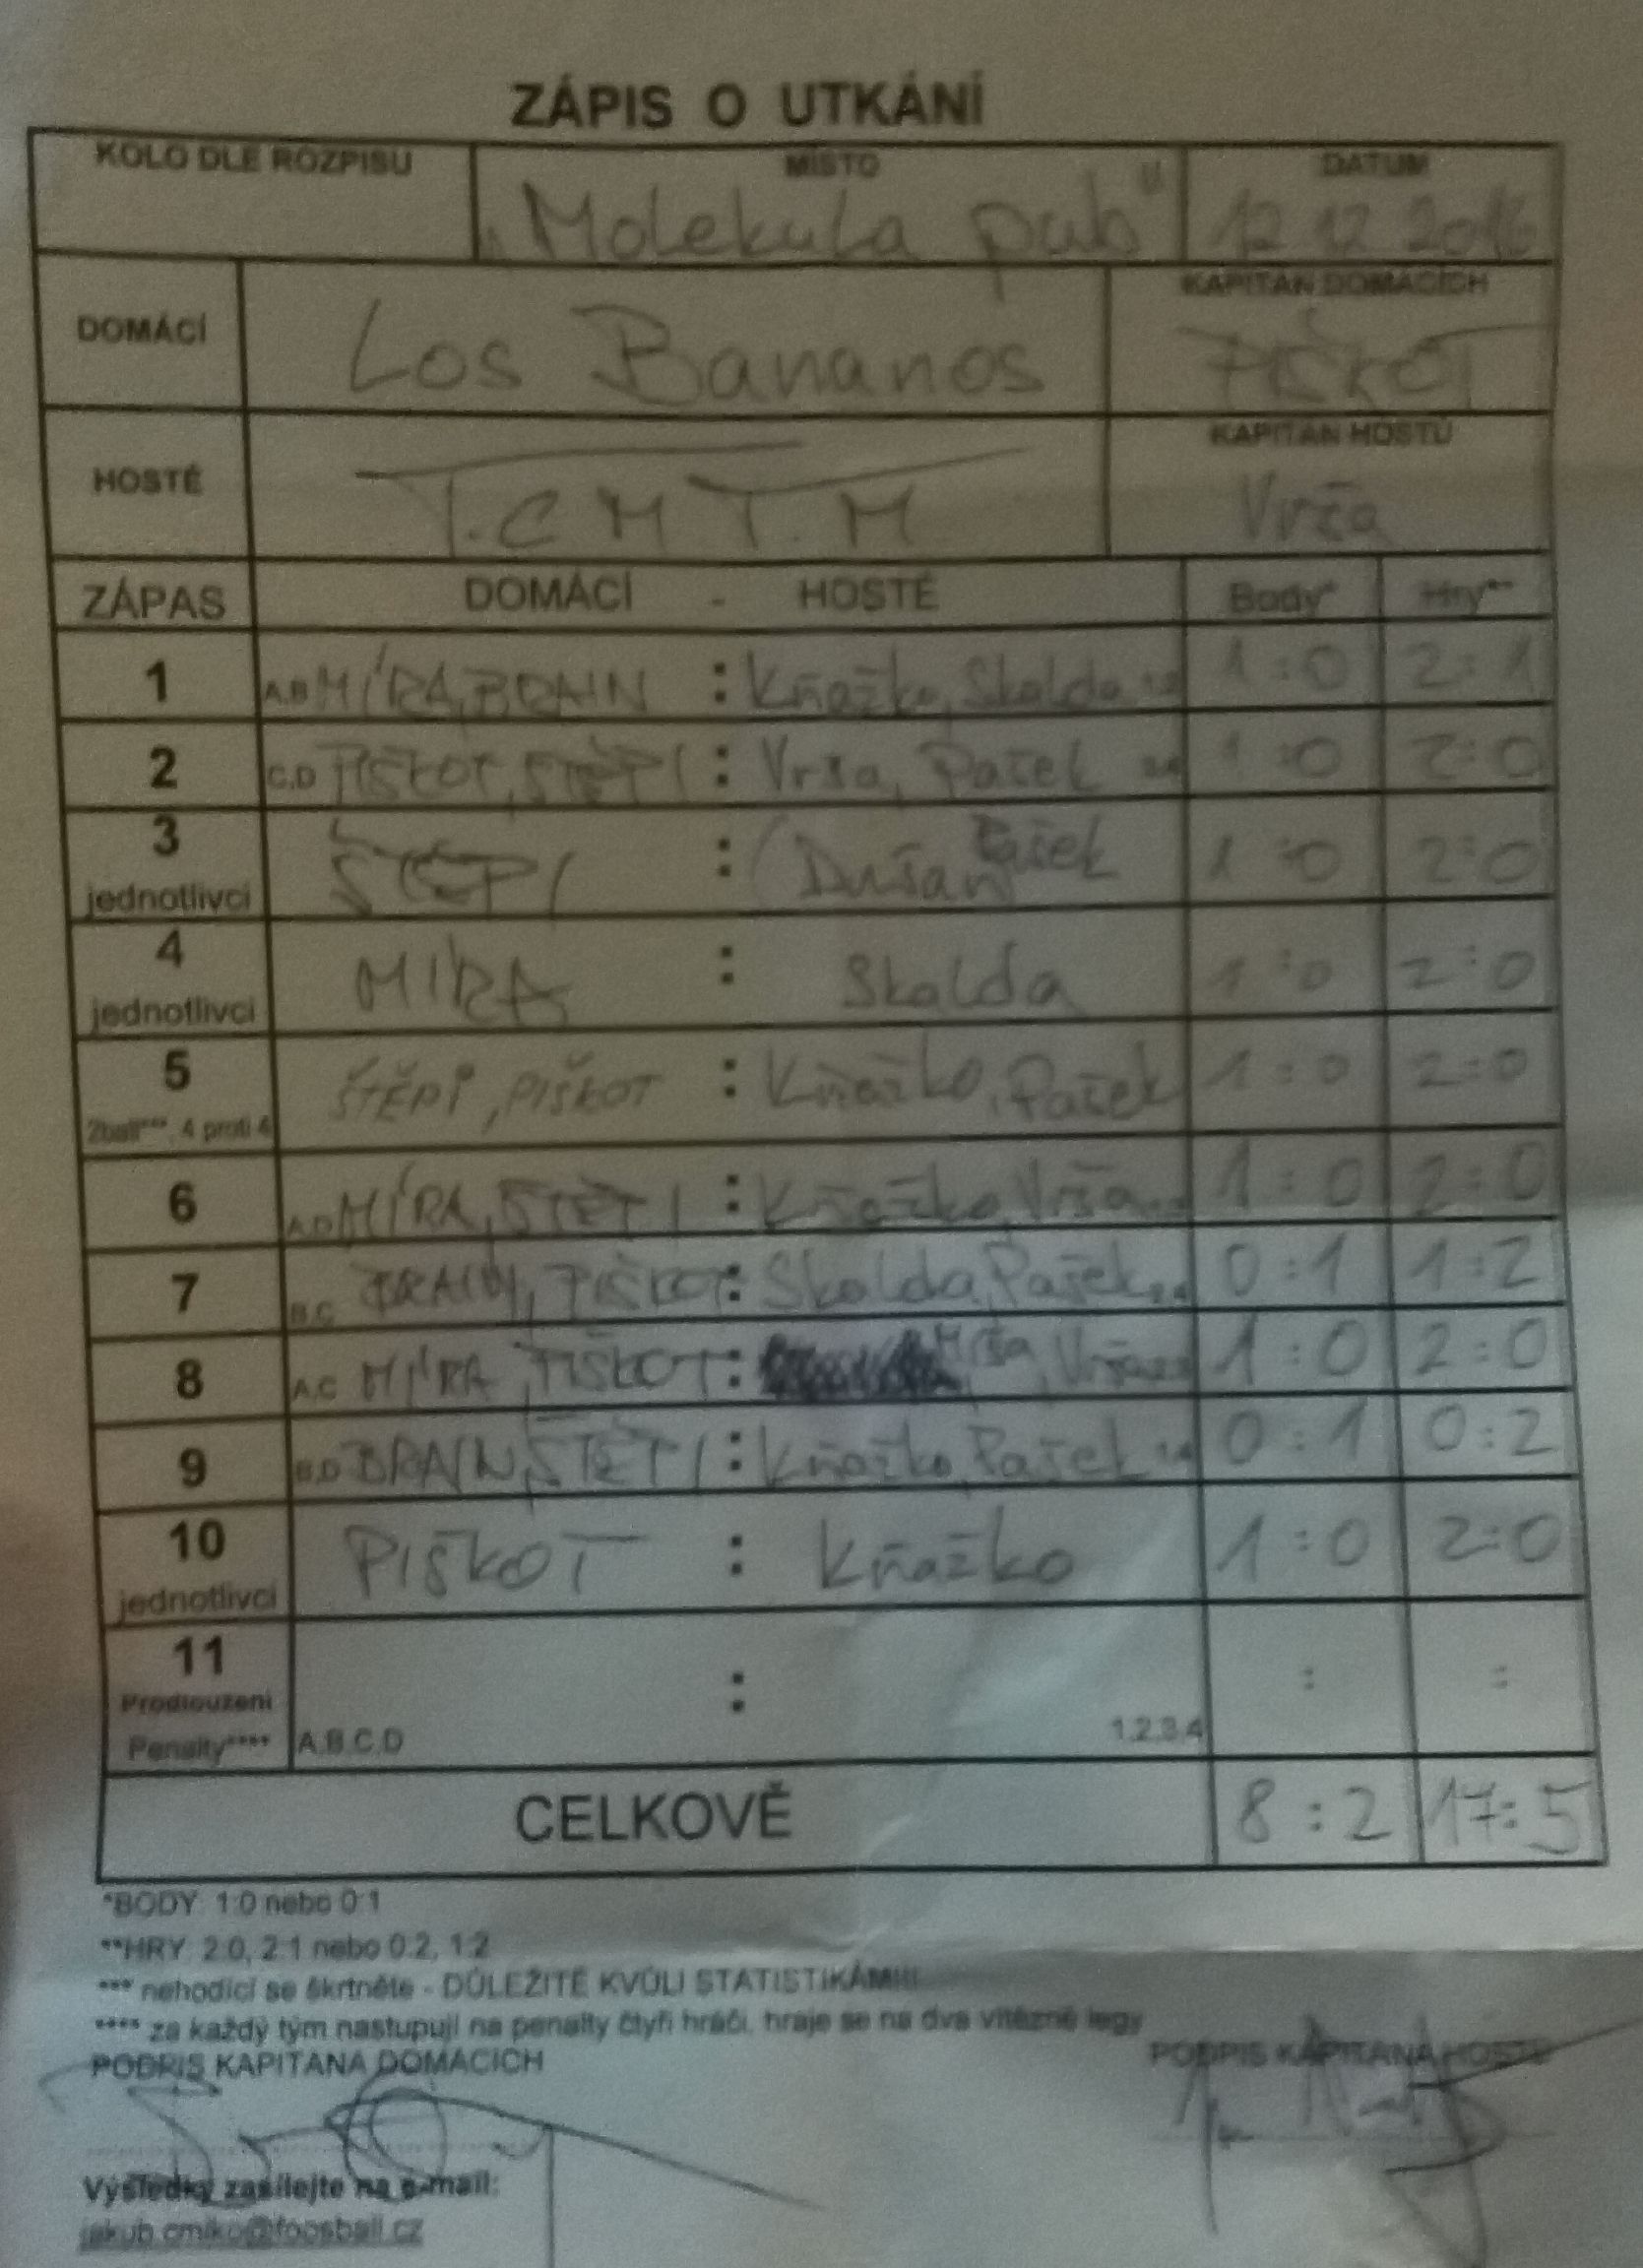 ZÁPIS O UTKÁNÍ
KOLO DLE ROZPISU MÍSTO DATUM
„Molekula pub" 12 12 2016
DOMÁCÍ Los Bananos KAPITÁN DOMÁCÍCH
PIŠKOT
HOSTÉ T.C M T.M KAPITÁN HOSTŮ
Vrša
ZÁPAS DOMÁCÍ - HOSTÉ Body* Hry**
1 A,B MÍRA, BRAIN : Kňažko, Skalda 1:0 2:1
2 C,D PIŠKOT, ŠTĚPI : Vrša, Pašek 1:0 2:0
3 jednotlivci ŠTĚPI : Dušan Pašek 1:0 2:0
4 jednotlivci MÍRA : Skalda 1:0 2:0
5 2ball***, 4 proti 4 ŠTĚPI, PIŠKOT : Kňažko, Pašek 1:0 2:0
6 A,D MÍRA, ŠTĚPI : Kňažko, Vrša 1:0 2:0
7 B,C BRAIN, PIŠKOT : Skalda, Pašek 0:1 1:2
8 A,C MÍRA, PIŠKOT : Vrša 1:0 2:0
9 B,D BRAIN, ŠTĚPI : Kňažko, Pašek 0:1 0:2
10 jednotlivci PIŠKOT : Kňažko 1:0 2:0
11 Prodloužení : : :
Penalty**** A,B,C,D 1,2,3,4
CELKOVĚ 8:2 17:5
*BODY: 1:0 nebo 0:1
**HRY: 2:0, 2:1 nebo 0:2, 1:2
*** nehodící se škrtněte - DŮLEŽITÉ KVŮLI STATISTIKÁM!!!
**** za každý tým nastupují na penalty čtyři hráči, hraje se na dva vítězné legy
PODPIS KAPITÁNA DOMÁCÍCH PODPIS KAPITÁNA HOSTŮ
Výsledky zasílejte na e-mail:
jakub.cmiko@foosball.cz